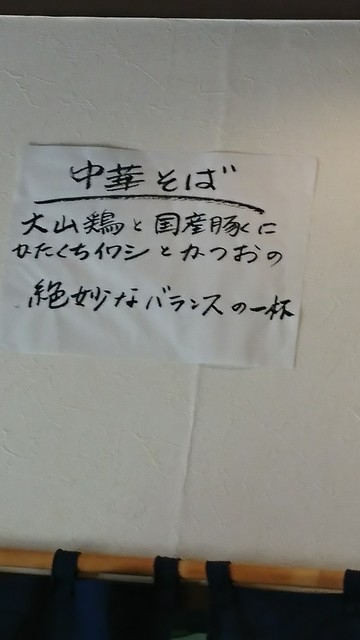 中華そば
大山鶏と国産豚に
かたくちイワシとかつおの
絶妙なバランスの一杯